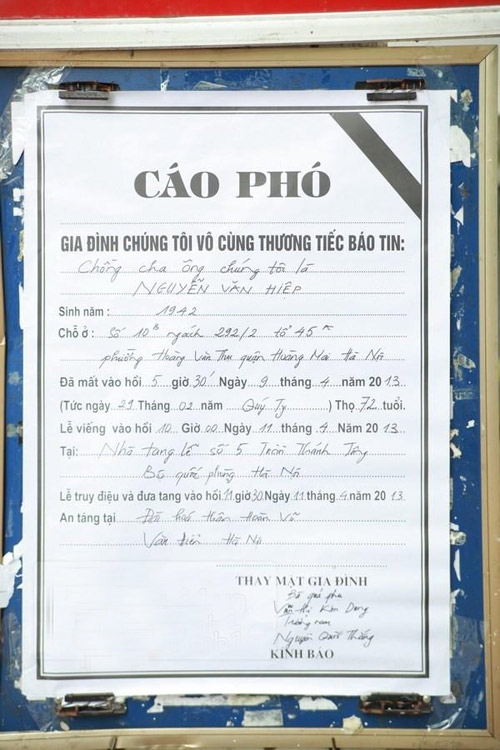 CÁO PHÓ
GIA ĐÌNH CHÚNG TÔI VÔ CÙNG THƯƠNG TIẾC BÁO TIN:
Chồng cha ông chúng tôi là
NGUYỄN VĂN HIỆP
Sinh năm : 1942
Chỗ ở : Số 10B ngách 292/2 tổ 45
phường Hoàng Văn Thụ quận Hoàng Mai Hà Nội
Đã mất vào hồi 5 giờ 30' Ngày 9 tháng 4 năm 2013
(Tức ngày 29 Tháng 02 năm Quý Tỵ ) Thọ 72 tuổi.
Lễ viếng vào hồi 10 Giờ 00 Ngày 11 tháng 4 Năm 2013
Tại: Nhà tang lễ số 5 Trần Thánh Tông
Bộ quốc phòng Hà Nội
Lễ truy điệu và đưa tang vào hồi 11 giờ 30 Ngày 11 tháng 4 năm 2013
An táng tại Đài hoá thân Hoàn Vũ
Văn Điển Hà Nội
THAY MẶT GIA ĐÌNH
Bà quả phụ
Văn Thị Kim Dung
Trưởng nam
Nguyễn Thắng
KÍNH BÁO